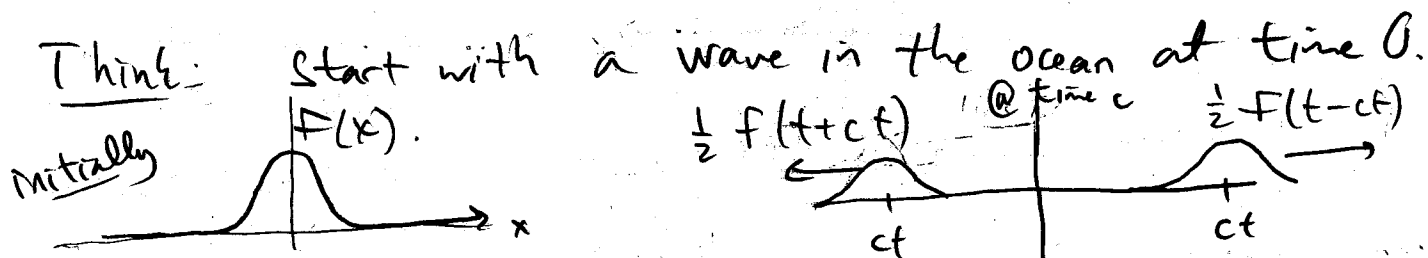 Think: Start with a wave in the ocean at time 0.
initially
F(x).
x
½ f(t+ct)
@ time c
½ F(t-ct)
ct
ct